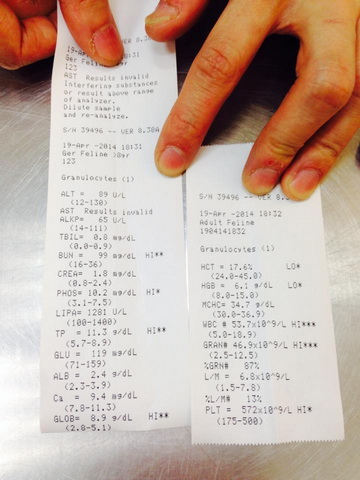 VER 8.38A
19-Apr 18:31
Ger Feline
123
AST Results invalid
Interfering substances
or result above range
of analyzer.
Dilute sample
and re-analyze.
S/N 39496 -- VER 8.38A
19-Apr -2014 18:31
Ger Feline >8yr
123
Granulocytes (1)
ALT = 89 U/L
(12-130)
AST Results invalid
ALKP= 65 U/L
(14-111)
TBIL= 0.8 mg/dL
(0.0-0.9)
BUN = 99 mg/dL HI**
(16-36)
CREA= 1.8 mg/dL
(0.8-2.4)
PHOS= 10.2 mg/dL HI*
(3.1-7.5)
LIPA= 1281 U/L
(100-1400)
TP = 11.3 g/dL HI**
(5.7-8.9)
GLU = 119 mg/dL
(71-159)
ALB = 2.4 g/dL
(2.3-3.9)
Ca = 9.4 mg/dL
(7.8-11.3)
GLOB= 8.9 g/dL HI**
(2.8-5.1)
S/N 39496 -- VER
19-Apr -2014 18:32
Adult Feline
1904141832
Granulocytes (1)
HCT = 17.6% LO*
(24.0-45.0)
HGB = 6.1 g/dL LO*
(8.0-15.0)
MCHC= 34.7 g/dL
(30.0-36.9)
WBC = 53.7x10^9/L HI***
(5.0-18.9)
GRAN= 46.9x10^9/L HI***
(2.5-12.5)
%GRN= 87%
L/M = 6.8x10^9/L
(1.5-7.8)
%L/M= 13%
PLT = 572x10^9/L HI*
(175-500)